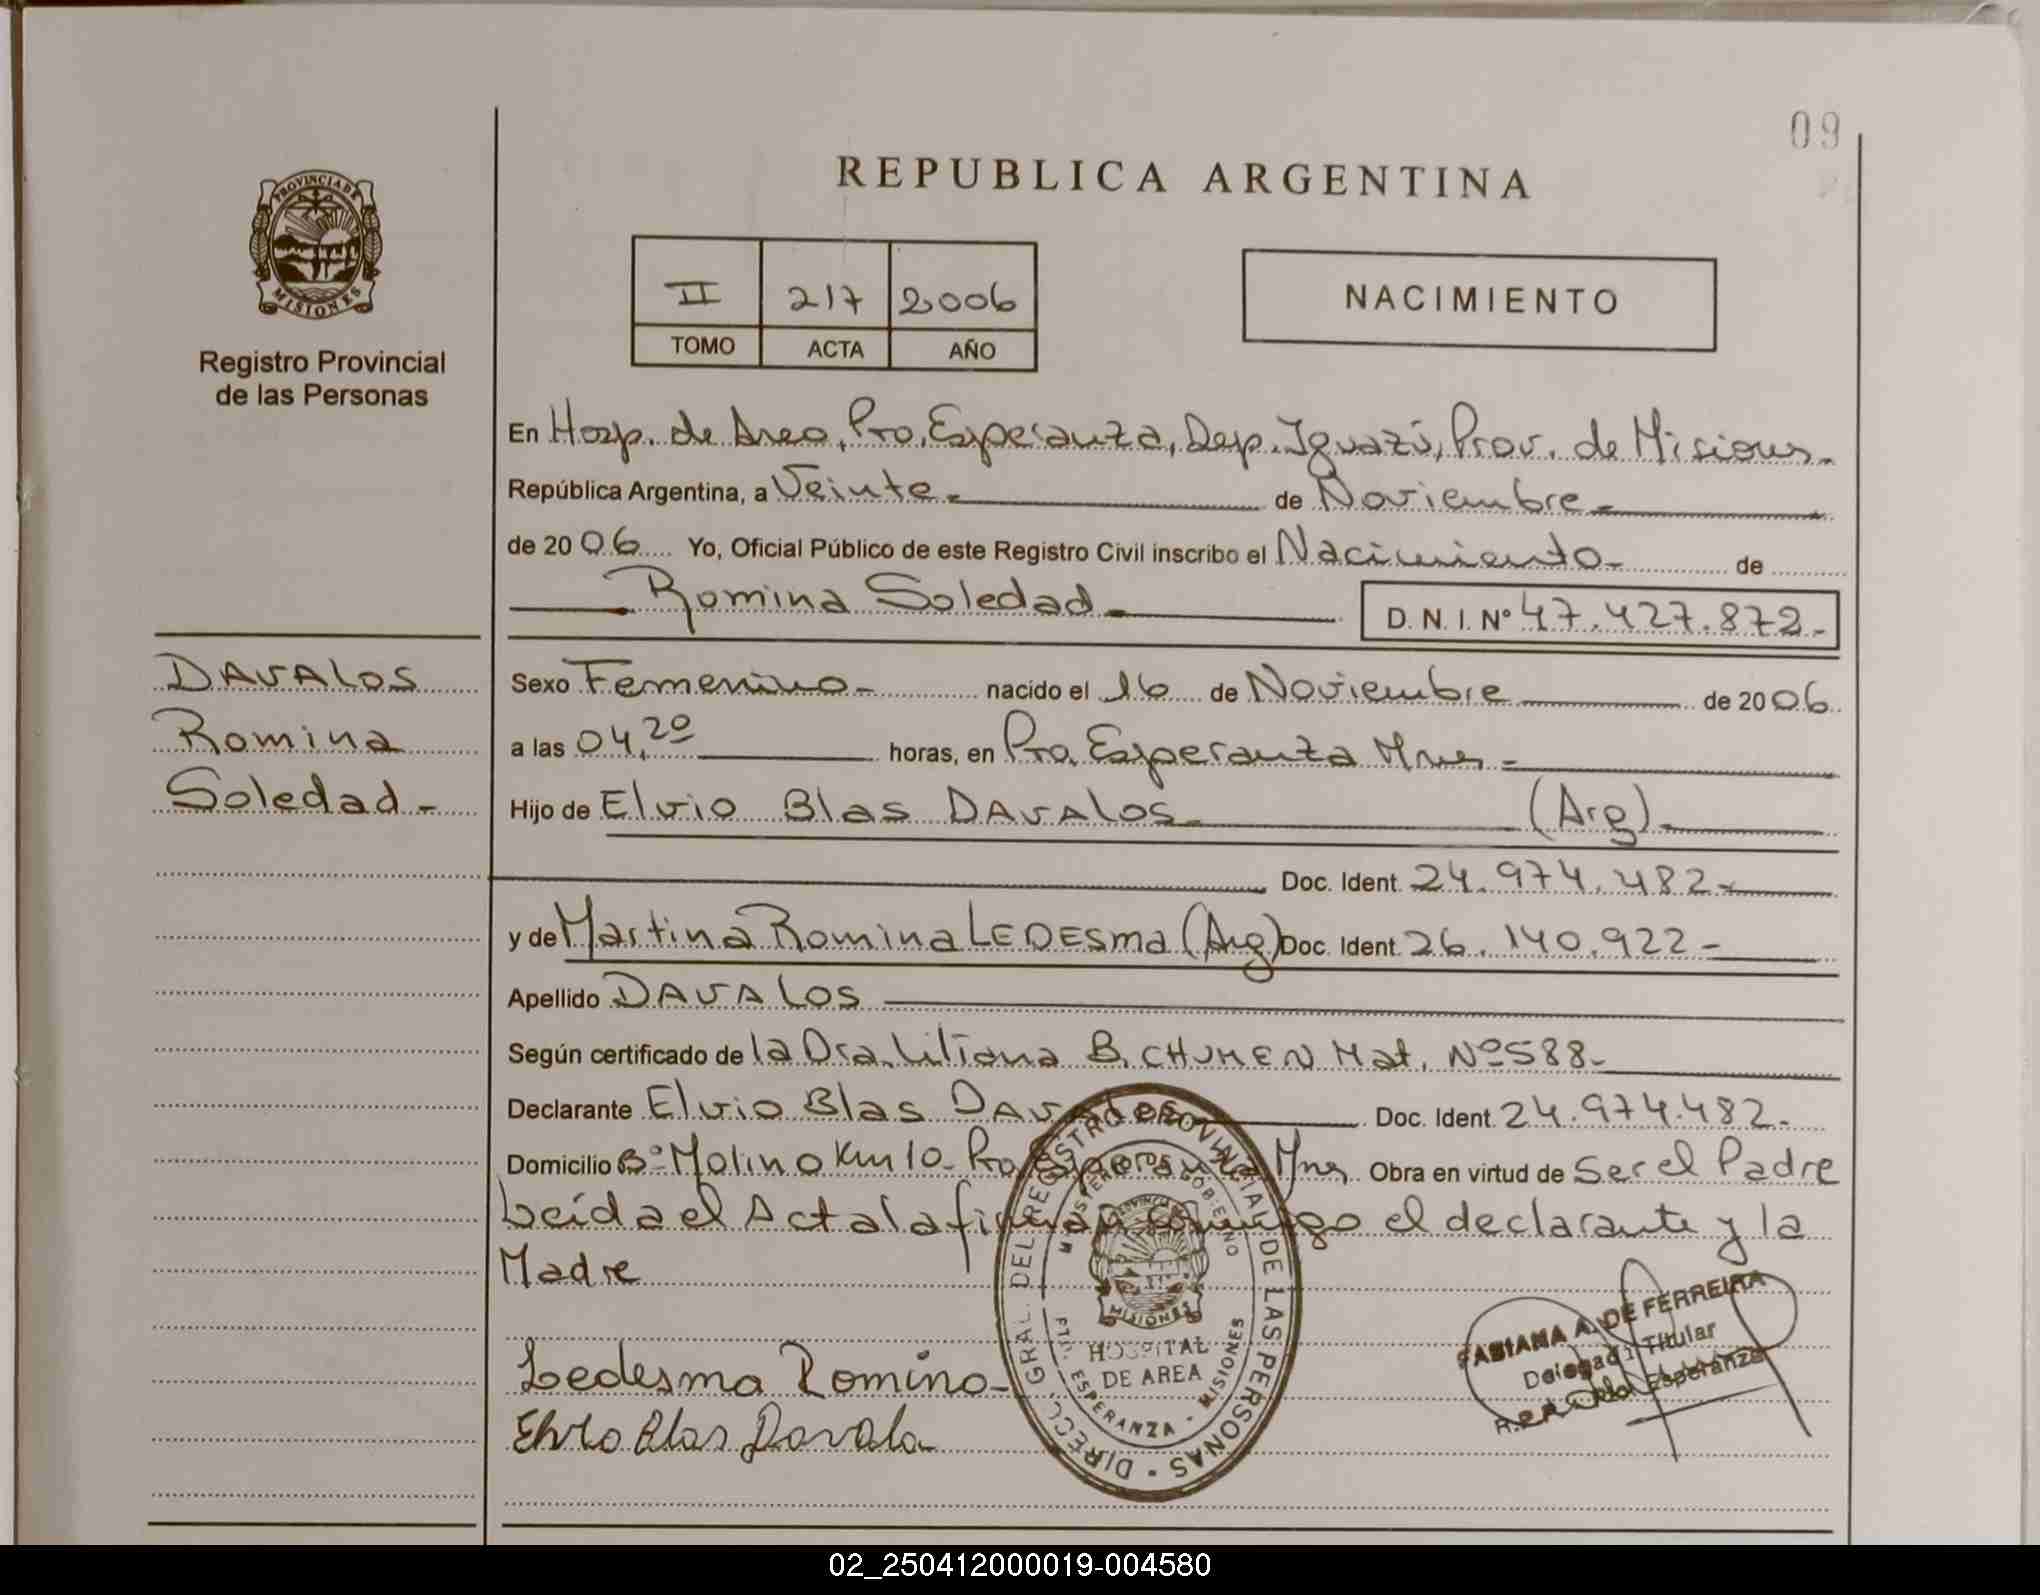 09
REPUBLICA ARGENTINA
PROVINCIA DE
MISIONES
Registro Provincial
de las Personas
II 217 2006
TOMO ACTA AÑO
NACIMIENTO
En Hosp. de Area, Pto. Esperanza, Dep. Iguazú, Prov. de Misiones.
República Argentina, a Veinte de Noviembre
de 2006 Yo, Oficial Público de este Registro Civil inscribo el Nacimiento de
Romina Soledad D. N. I. Nº 47.427.872.-
DAVALOS
Romina
Soledad-
Sexo Femenino- nacido el 16 de Noviembre de 2006
a las 04,20 horas, en Pto. Esperanza Mnes -
Hijo de Elvio Blas DAVALOS (Arg)
Doc. Ident. 24.974.482-
y de Martina Romina LEDESMA (Arg) Doc. Ident. 26.140.922-
Apellido DAVALOS
Según certificado de la Dra. Liliana B. CHUMEN Mat. Nº 588-
Declarante Elvio Blas Davalos Doc. Ident. 24.974.482-
Domicilio Bº Molino Km 10- Pto Esperanza Mnes. Obra en virtud de Ser el Padre
Leída el Acta la firman conmigo el declarante y la
Madre
Ledesma Romina-
Elvio Blas Davalo
DIRECC. GRAL. DEL REGISTRO PROVINCIAL DE LAS PERSONAS
MINISTERIO DE GOBIERNO
PROVINCIA DE
MISIONES
HOSPITAL
DE AREA
PTO. ESPERANZA - MISIONES
FABIANA A. DE FERREIRA
Delegada Titular
Esperanza
02_250412000019-004580